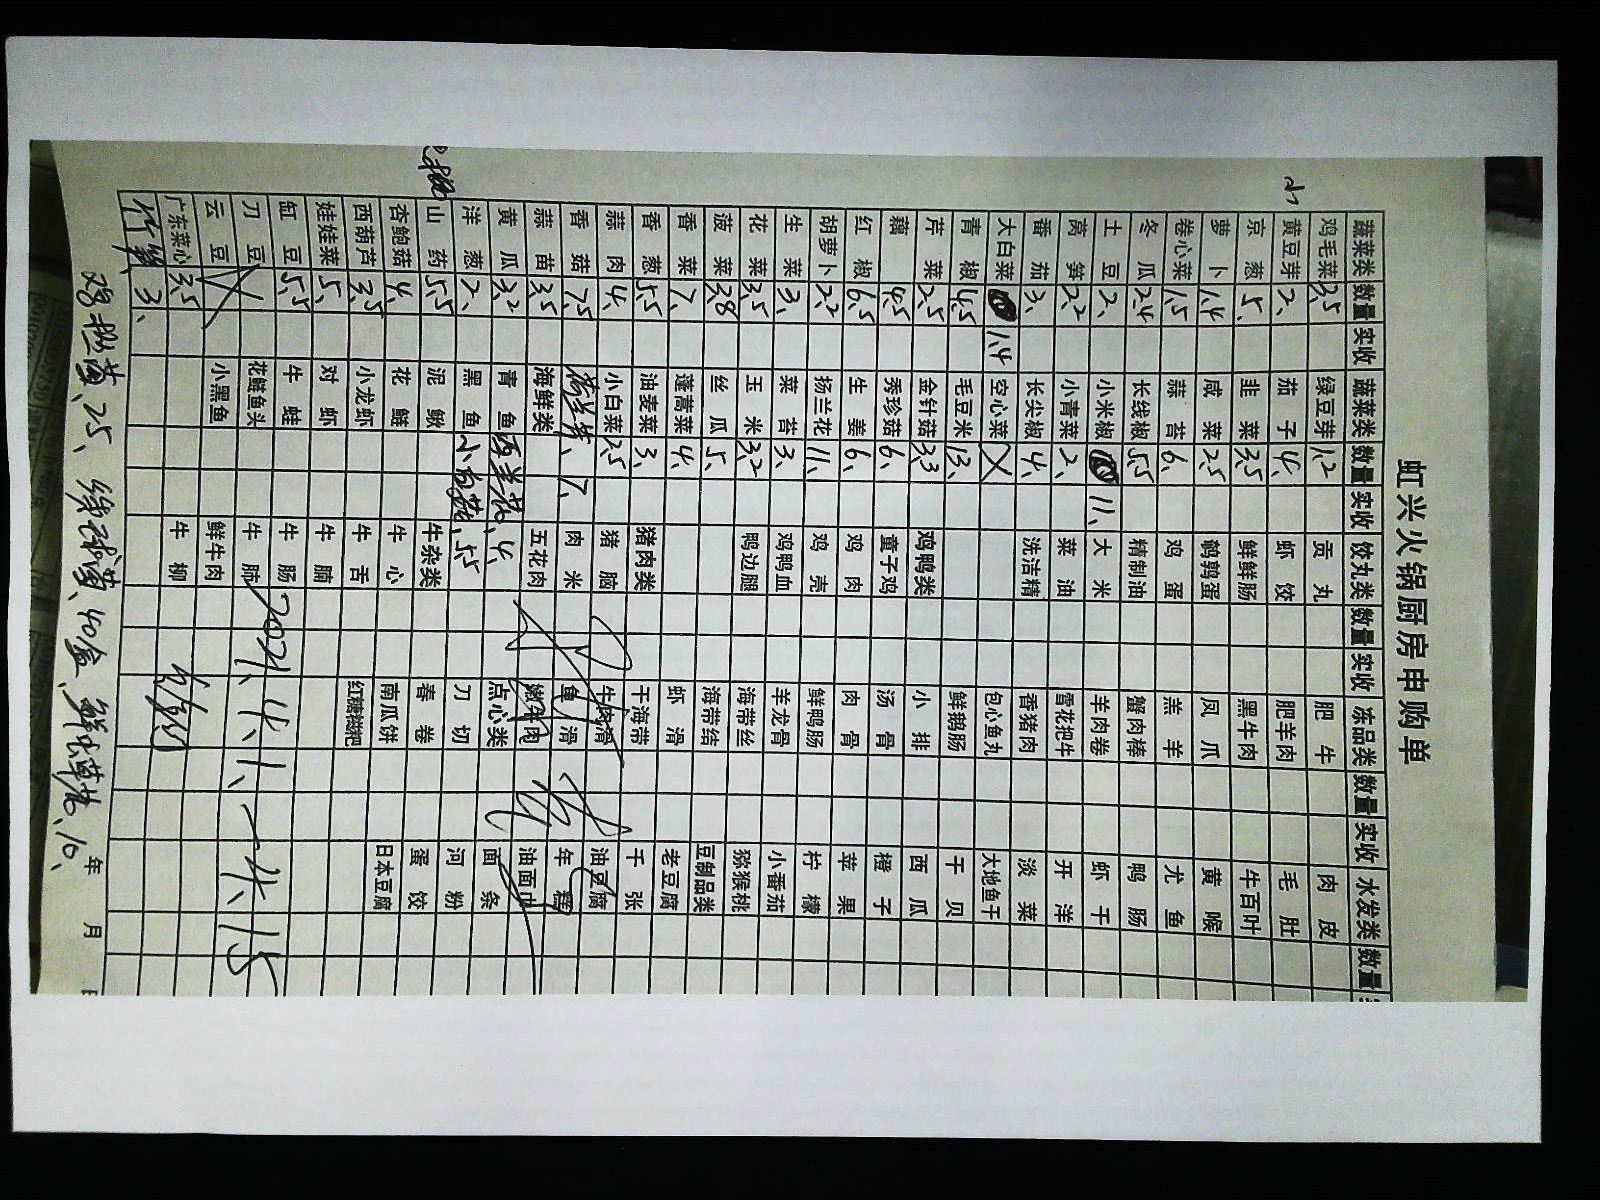 虹兴火锅厨房申购单
蔬菜类 数量 实收 蔬菜类 数量 实收 饺丸类 数量 实收 冻品类 数量 实收 水发类 数量
鸡毛菜 3.5 绿豆芽 1.2 贡丸 肥牛 肉皮
黄豆芽 2、 茄子 4、 虾饺 肥羊肉 毛肚
京葱 5、 韭菜 3.5 鲜鲜肠 黑牛肉 牛百叶
萝卜 1.4 咸菜 2.5 鹌鹑蛋 凤爪 黄喉
卷心菜 1.5 蒜苔 6、 鸡蛋 羔羊 尤鱼
冬瓜 2.4 长线椒 5.5 精制油 蟹肉棒 鸭肠
土豆 2、 小米椒 11、 大米 羊肉卷 虾干
莴笋 2.2 小青菜 2、 菜油 雪花把牛 开洋
番茄 3、 长尖椒 4、 洗洁精 香猪肉 淡菜
大白菜 1.4 空心菜 包心鱼丸 大地鱼干
青椒 4.5 毛豆米 13、 鲜鹅肠 干贝
芹菜 2.5 金针菇 3.3 鸡鸭类 小排 西瓜
藕 4.5 秀珍菇 6、 童子鸡 汤骨 橙子
红椒 6.5 生姜 6、 鸡肉 肉骨 苹果
胡萝卜 2.2 扬兰花 11、 鸡壳 鲜鸭肠 柠檬
生菜 3、 菜苔 3、 鸡鸭血 羊龙骨 小番茄
花菜 3.5 玉米 3.2 鸭边腿 海带丝 猕猴桃
菠菜 3.8 丝瓜 5、 海带结 豆制品类
香菜 7、 蓬蒿菜 4、 虾滑 老豆腐
香葱 5.5 油麦菜 3、 猪肉类 干海带 千张
蒜肉 4、 小白菜 2.5 猪脑 牛肉滑 油豆腐
香菇 7.5 7、 肉米 鱼滑 年糕
蒜苗 3.5 海鲜类 五花肉 嫩牛肉 油面
黄瓜 3.2 青鱼 西兰花、4、 点心类 面条
洋葱 2、 黑鱼 5.5 刀切 河粉
山药 5.5 泥鳅 牛杂类 春卷 蛋饺
杏鲍菇 4、 花鲢 牛心 南瓜饼 日本豆腐
西葫芦 3.5 小龙虾 牛舌 红糖糍粑
娃娃菜 5、 对虾 牛腩
缸豆 5.5 牛蛙 牛肠
刀豆 花鲢鱼头 牛肺
云豆 小黑鱼 鲜牛肉
广东菜心 3.5 牛柳
3、
40盒、10、
年 月